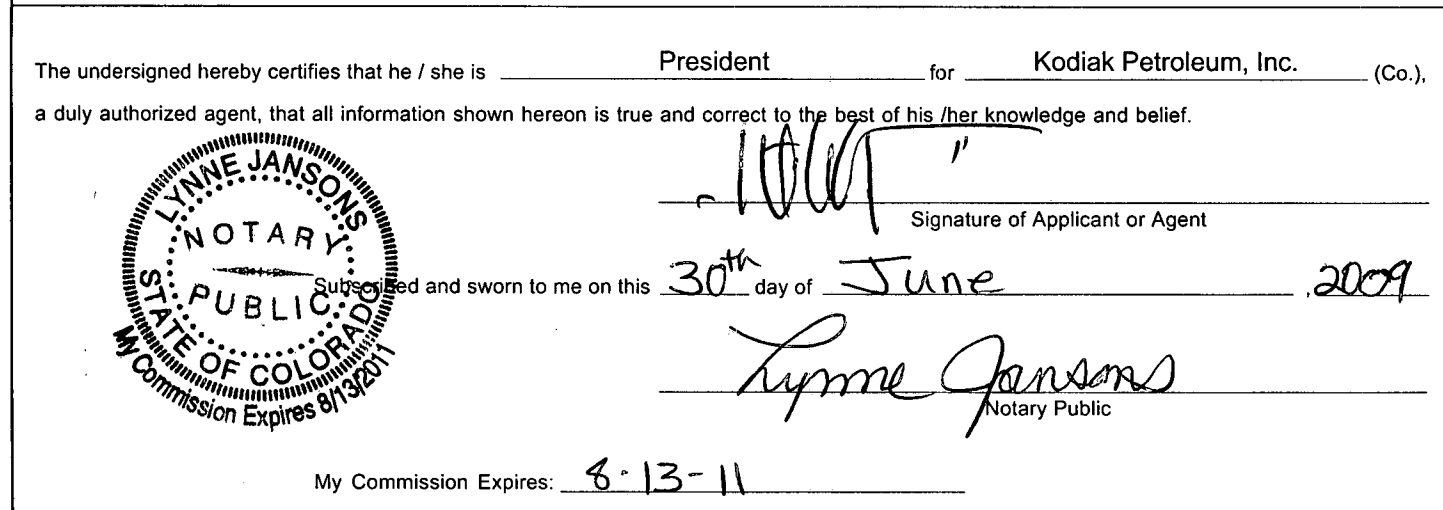 The undersigned hereby certifies that he / she is President for Kodiak Petroleum, Inc. (Co.),
a duly authorized agent, that all information shown hereon is true and correct to the best of his /her knowledge and belief.
Signature of Applicant or Agent
LYNNE JANSONS
NOTARY
PUBLIC
STATE OF COLORADO
My Commission Expires 8/13/2011
Subscribed and sworn to me on this 30th day of June , 2009
Lynne Jansons
Notary Public
My Commission Expires: 8-13-11